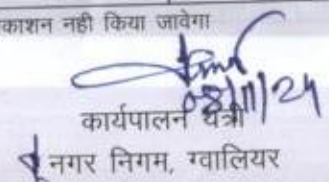 काशन नही किया जावेगा
08/11/24
कार्यपालन यंत्री
नगर निगम, ग्वालियर